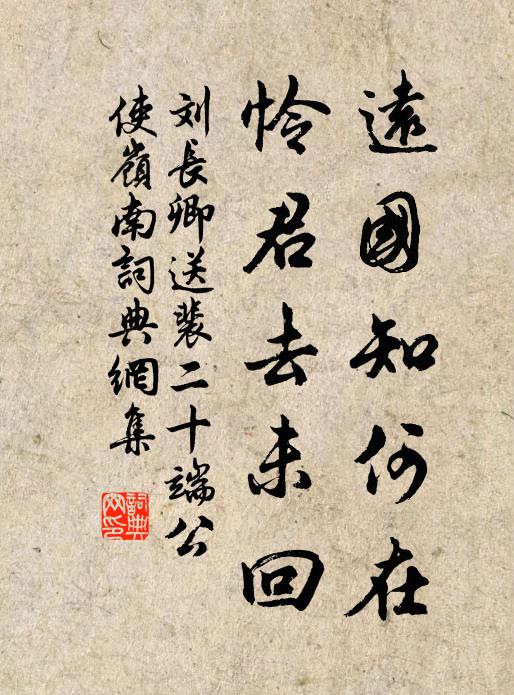 遠國知何在
憐君去未回
刘長卿送裴二十端公
使嶺南詞典網集
詞典
网印